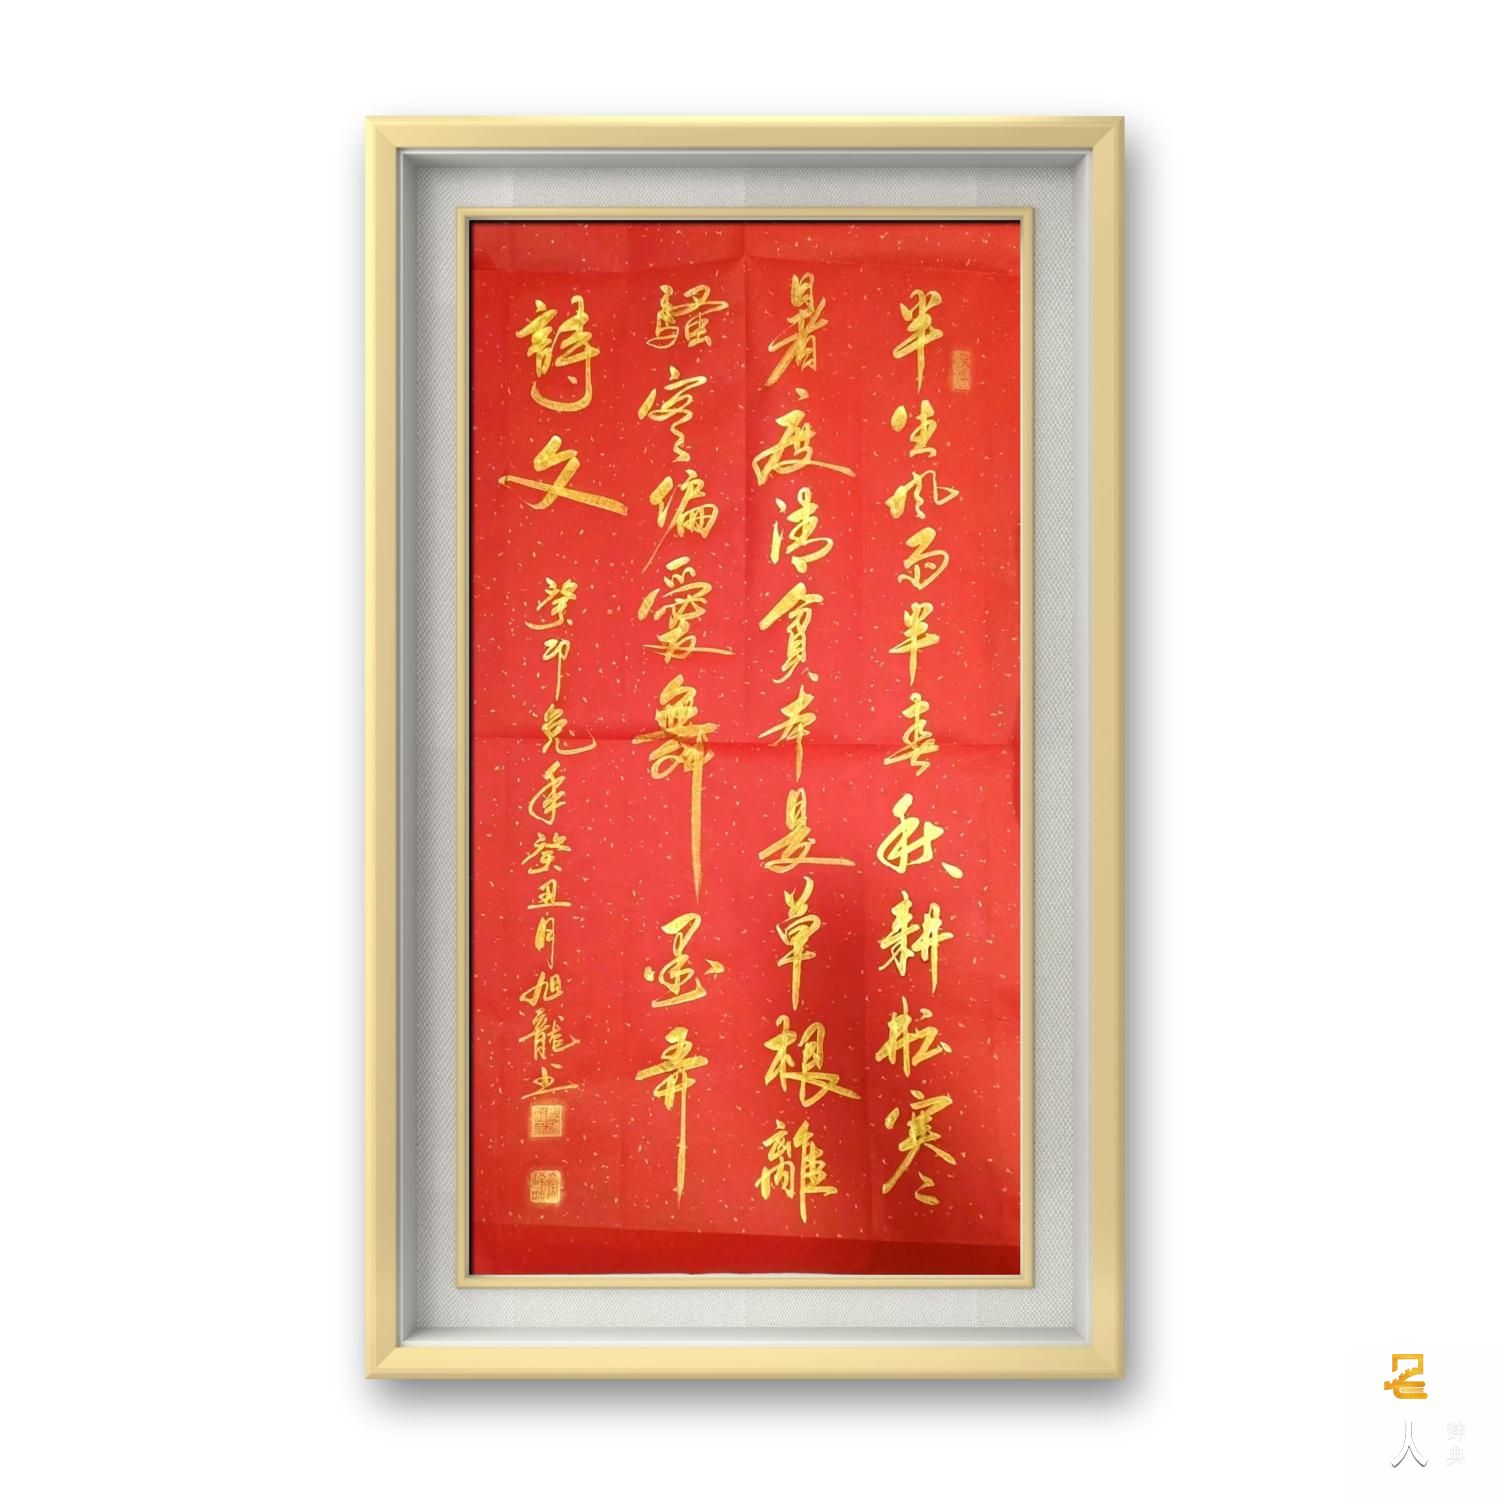 半生风雨半春秋耕耘寒
暑度清貧本是草根離
騷客偏愛舞墨弄
詩文
癸卯兔年癸丑月旭龍书
名人
辞典